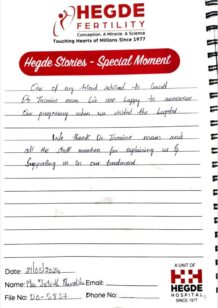 HEGDE
FERTILITY
Conception. A Miracle. A Science
Touching Hearts of Millions Since 1977
Hegde Stories - Special Moment
One of my friend advised to consult
Dr Jasmine mam We are happy to announce
our pregnancy when we visited the hospital
We thank Dr Jasmine mam and
all the staff members for explaining us &
Supporting us in our treatment
Date:
Name: Mrs Email:
File No: DO-5837 Phone No:
A UNIT OF
HEGDE
HOSPITAL
SINCE 1977